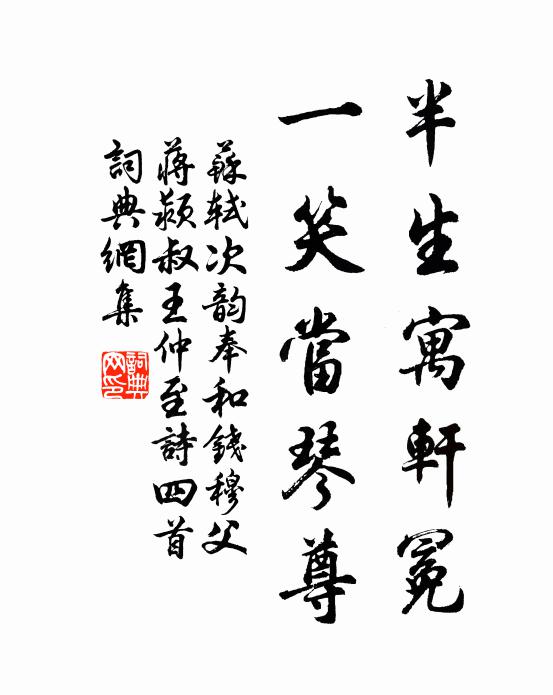 半生寓軒冕
一笑當琴尊
蘇軾次韵奉和錢穆父
蔣颖叔王仲至詩四首
詞典網集
詞典网印